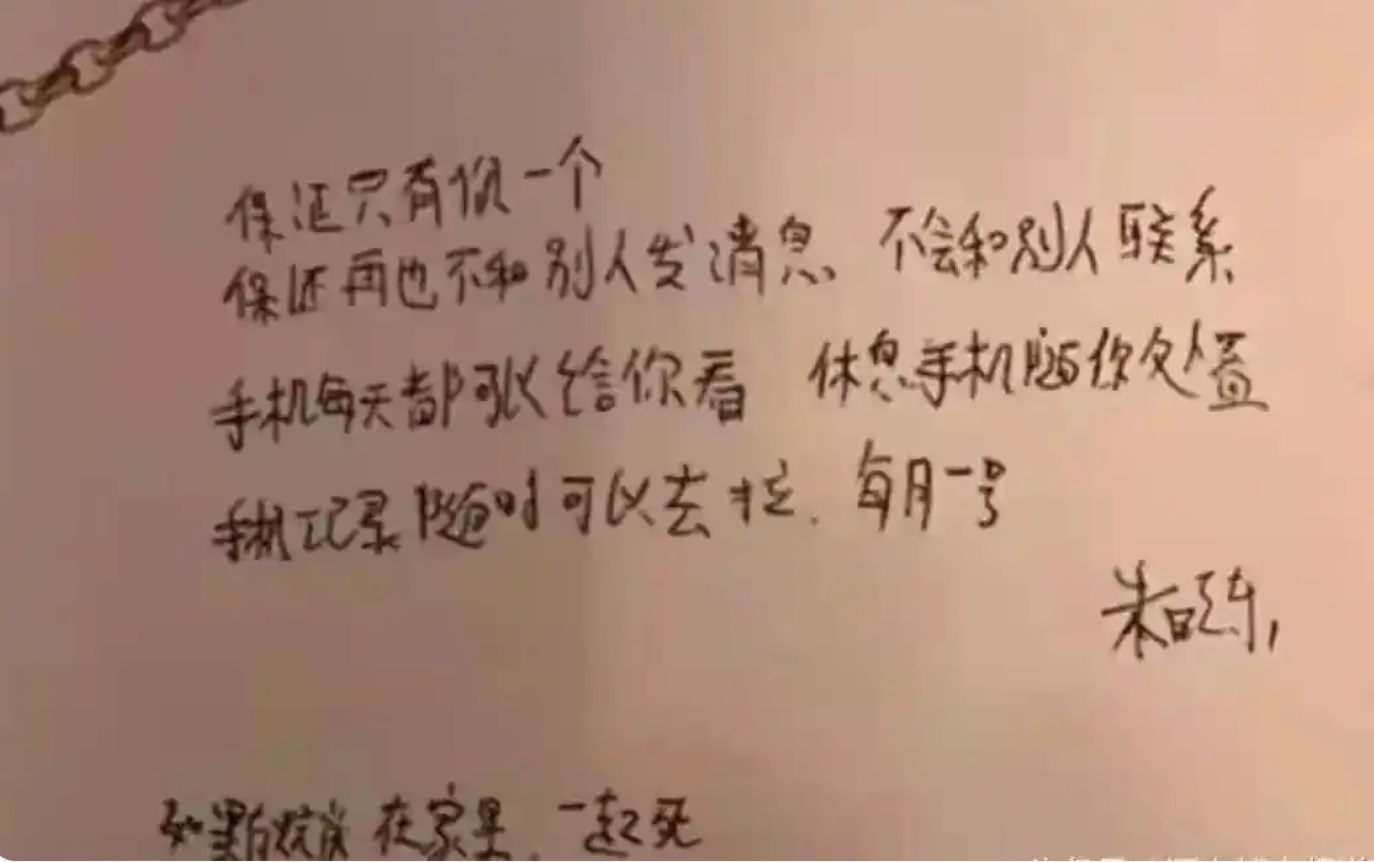 保证只有你一个
保证再也不和别人发消息 不会和别人联系
手机每天都可以给你看 休息手机随你处置
手机记录随时可以去拉. 每月一号
朱晓东,
如果 在家里, 一起死